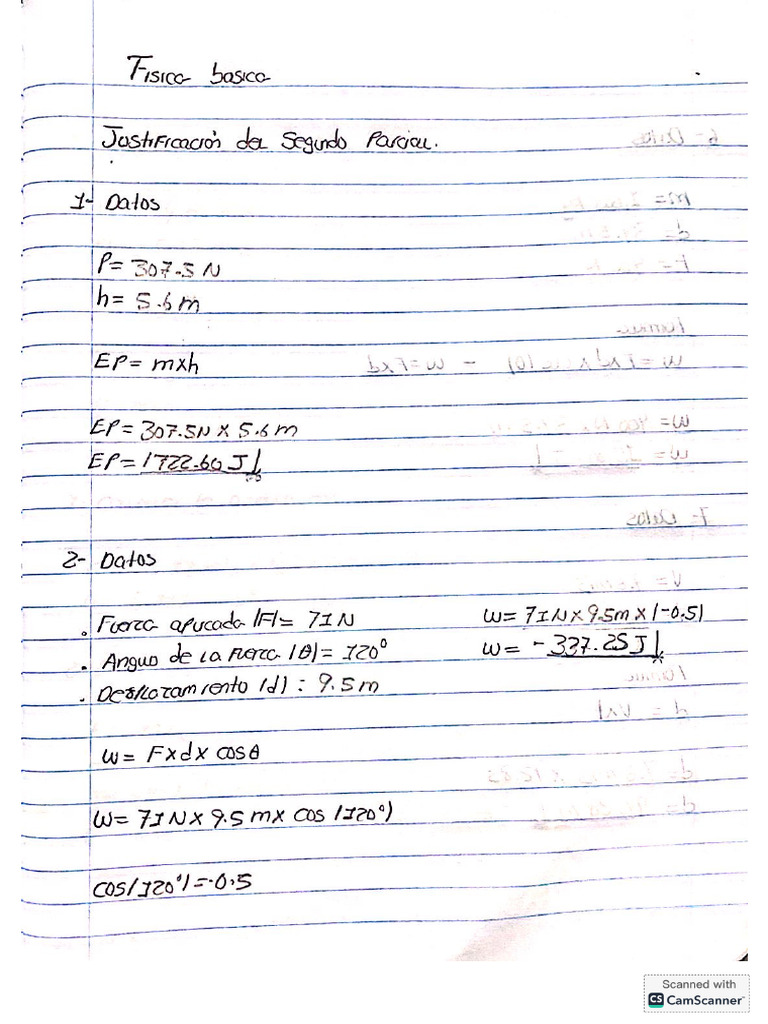 Fisica basica
Justificación del Segundo Parcial.
1- Datos
P= 307.5 N
h= 5.6 m
EP= mxh
EP= 307.5N x 5.6 m
EP= 1722.60 J
2- Datos
. Fuerza aplicada (F)= 71N
. Angulo de la fuerza (θ)= 120°
. Desplazamiento (d) : 9.5 m
W= Fxdx cosθ
W= 71N x 9.5 mx cos (120°)
cos(120°)=-0.5
W= 71N x 9.5m x (-0.5)
W= -337.25J
Scanned with
CS CamScanner